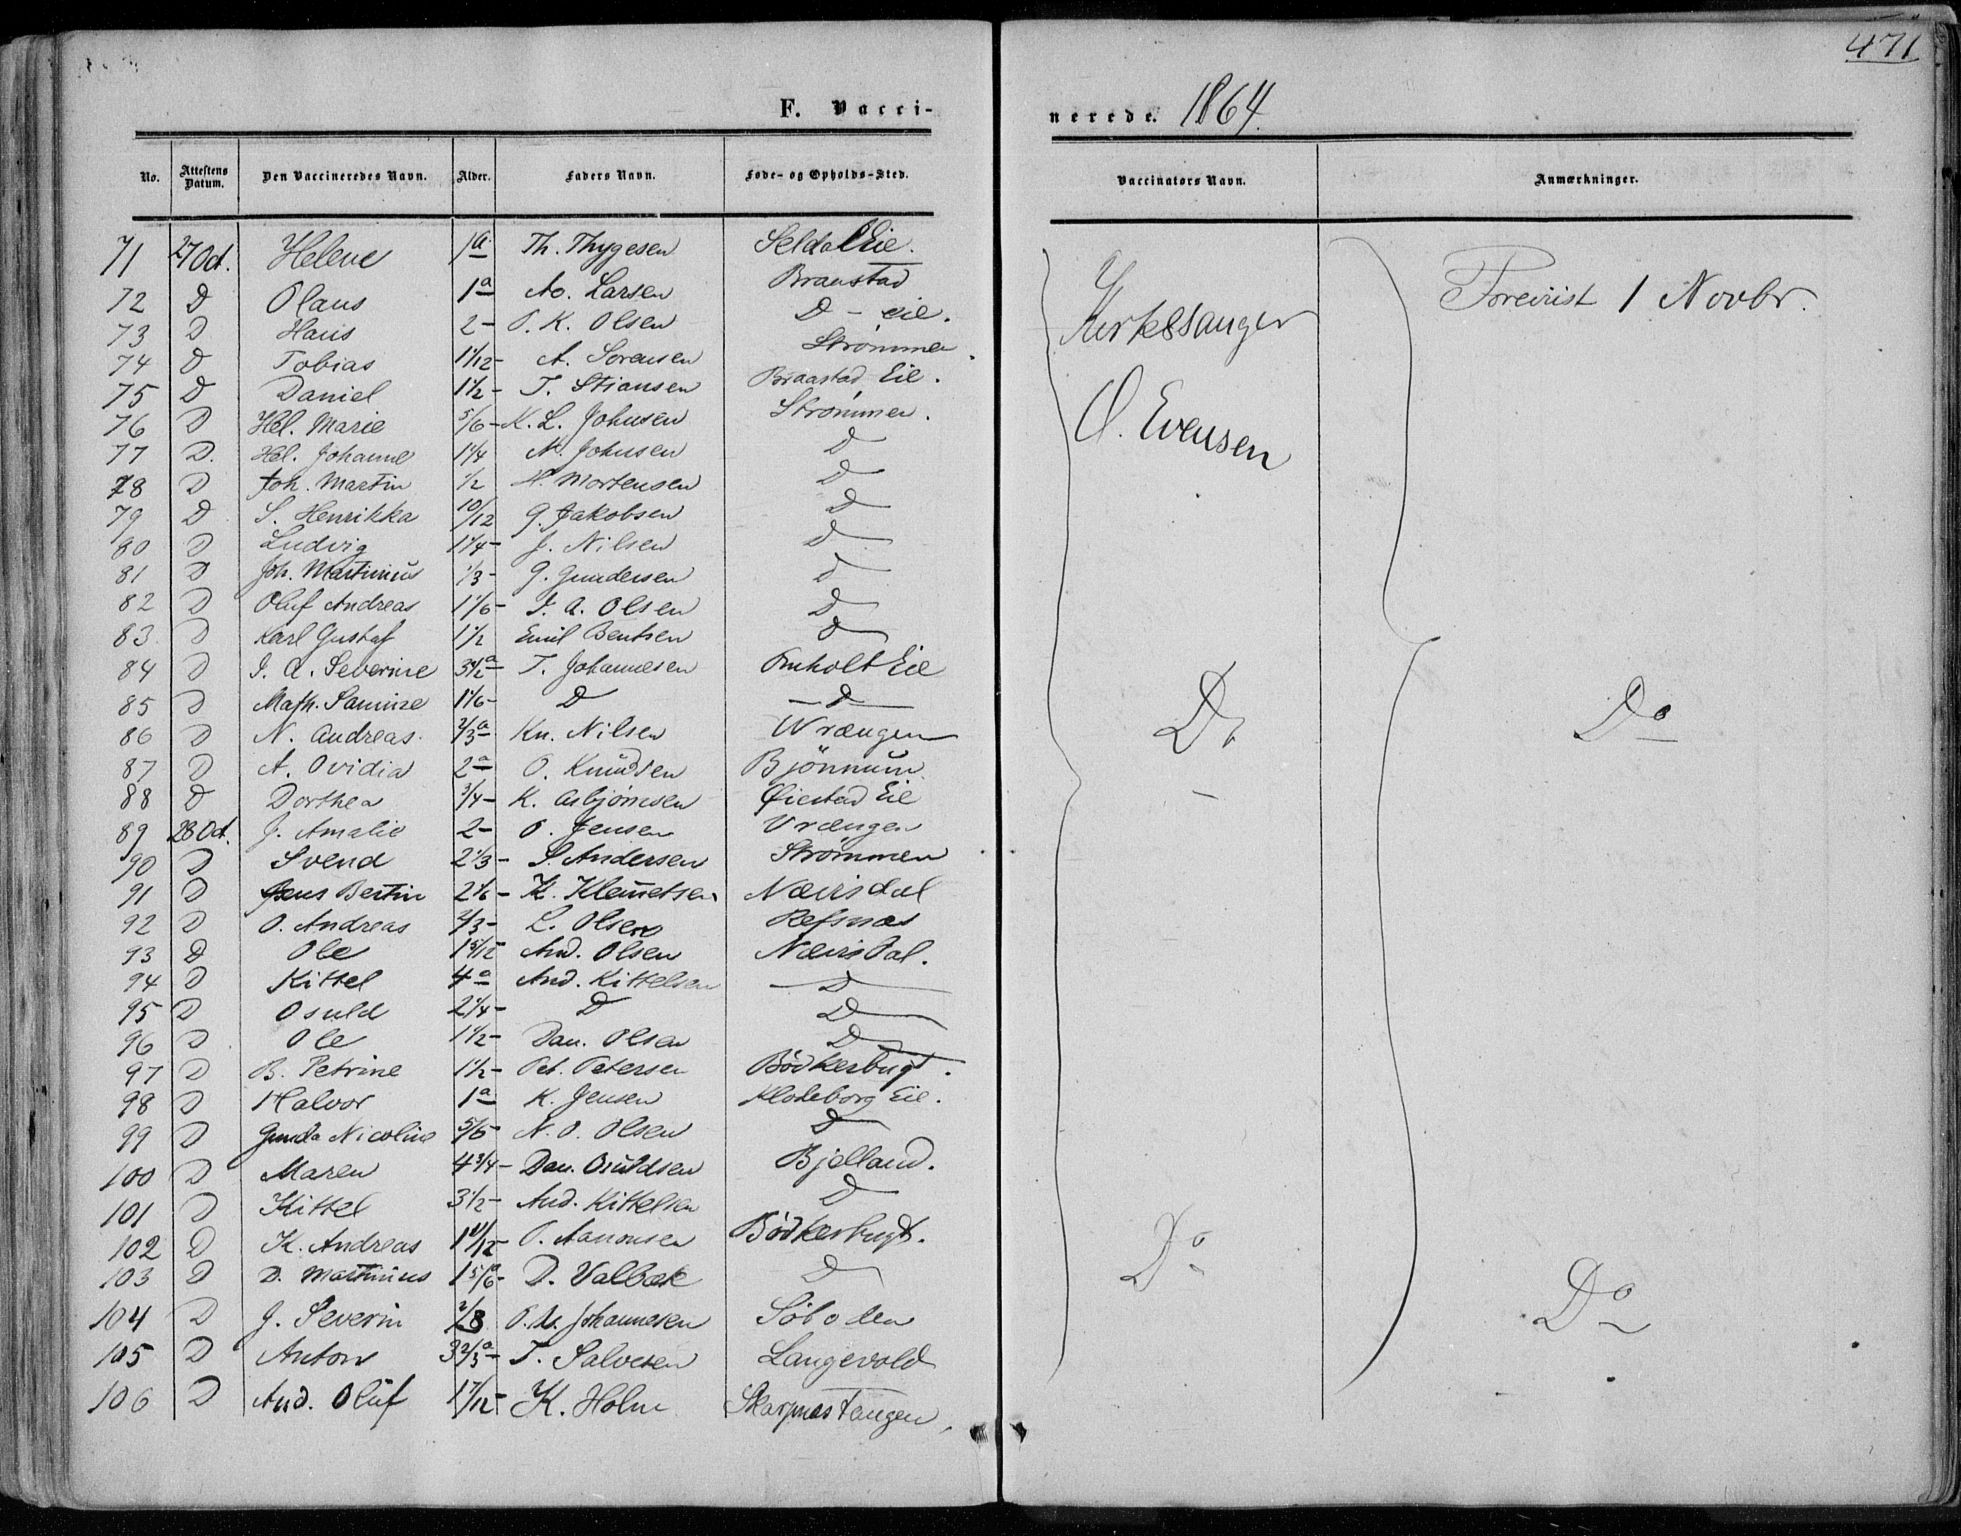 471
F. Vacci-
nerede. 1864.
No. Attestens Datum. Den Vaccineredes Navn. Alder. Faders Navn. Føde- og Opholds-Sted. Vaccinators Navn. Anmærkninger.
71 27 Oct. Helene 1 a Th. Thygesen Seldal Eie.
72 D Olaus 1 a Ao. Larsen Braastad
73 D Hans 2 - O. K. Olsen D - eie.
74 D Tobias 1 1/12 - A. Sorensen Strømmen.
75 D Daniel 1 1/2 - T. Stiansen Braastad Eie.
76 D Hel. Marie 5/6 - K. L. Johnsen Strømmen.
77 D. Hel. Johanne 1 1/4 N. Johnsen D
78 D Joh. Martin 1/2 N. Mortensen D
79 D S. Henrikka 10/12 G. Jakobsen D
80 D Ludvig 1 1/4 - J. Nilsen D
81 D Joh. Martinius 1/3 - G. Gundersen D
82 D Oluf Andreas 1 1/6 - J. A. Olsen D
83 D Karl Gustaf 1 1/2 Emil Bentsen D
84 D J. A. Severine 3 1/2 a T. Johannesen Omholt Eie
85 D Math. Samine 1 1/6 - D - D
86 D N. Andreas. 2/3 a Kn. Nilsen Wrængen
87 D A. Ovidia 2 a O. Knudsen Bjönnum
88 D Dorthea 3/4 - K. Asbjörnsen Øiestad Eie
89 28 Oct. J. Amalie 2 - O. Jensen Vrængen
90 D Svend 2 1/3 - S. Andersen Strømmen
91 D Jens Bertin 2 1/6 - K. Klemetsen Næirisdal
92 D O. Andreas 2/3 - L. Olsen Refsnæs
93 D Ole 1 5/12 And. Olsen Næirisdal.
94 D Kittel 4 a And. Kittelsen D
95 D Osuld 2 1/4 - D D
96 D Ole 1 1/2 - Dan. Olsen D
97 D B. Petrine 1 1/2 - Pet. Petersen Bödkerbugt.
98 D Halvor 1 a K. Jensen Klodeborg Eie.
99 D Gunda Nicoline 5/6 - N. O. Olsen D
100 D Maren 4 3/4 - Dan. Osuldsen Bjelland.
101 D Kittel 3 1/2 - And. Kittelsen D
102 D K. Andreas 1 11/12 - O. Aanonsen Bödkerbugt.
103 D D. Martinius 1 5/6 a - D. Valbæk D
104 D J. Severin 2/3 O. N. Johannesen Söboden
105 D Anton 3 2/3 a - T. Salvesen Langevold
106 D And. Oluf 1 7/12 - K. Holm Skarpnæstangen.
Kirkesanger
O. Evensen
Foreviist 1 Novbr.
Do
Do
Do
Do